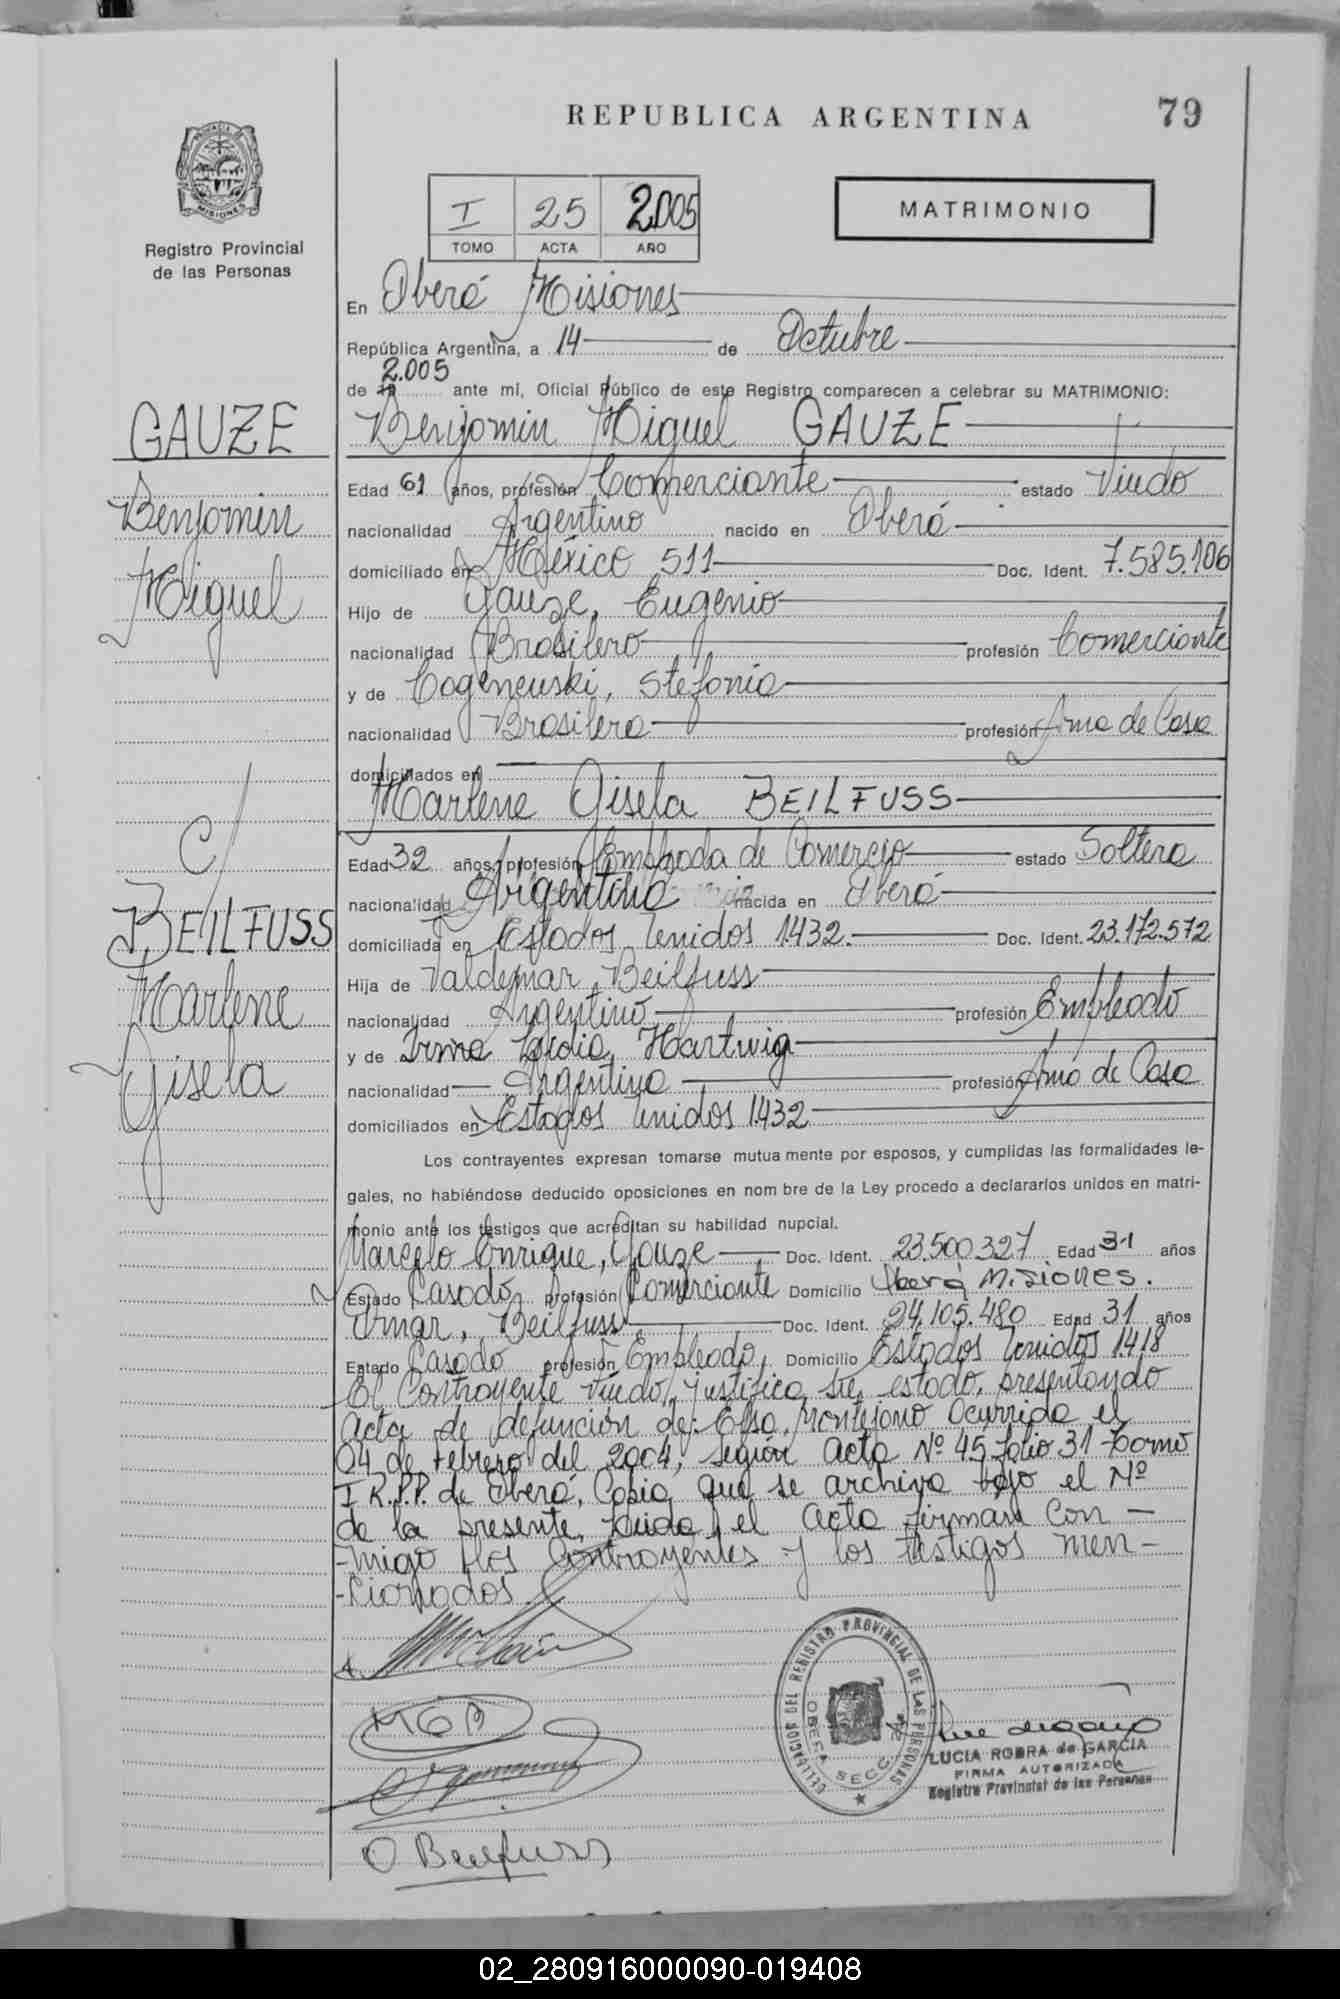 REPUBLICA ARGENTINA
79
PROVINCIA DE
MISIONES
Registro Provincial
de las Personas
I 25 2.005
TOMO ACTA AÑO
MATRIMONIO
En Oberá Misiones
República Argentina, a 14 de Octubre
2.005
de 19 ante mí, Oficial Público de este Registro comparecen a celebrar su MATRIMONIO:
GAUZE
Benjamin
Miguel
Benjamin Miguel GAUZE
Edad 61 años, profesión Comerciante estado Viudo
nacionalidad Argentino nacido en Oberá
domiciliado en México 511 Doc. Ident. 7.585.106
Hijo de Gauze, Eugenio
nacionalidad Brasilero profesión Comerciante
y de Cogeneuski, Stefania
nacionalidad Brasilera profesión Ama de Casa
domiciliados en
c/
BEILFUSS
Marlene
Gisela
Marlene Gisela BEILFUSS
Edad 32 años, profesión Empleada de Comercio estado Soltera
nacionalidad Argentina nacida en Oberá
domiciliada en Estados Unidos 1432. Doc. Ident. 23.172.572
Hija de Valdemar Beilfuss
nacionalidad Argentino profesión Empleado
y de Irma Lidia Hartwig
nacionalidad Argentina profesión Ama de Casa
domiciliados en Estados Unidos 1432
Los contrayentes expresan tomarse mutua mente por esposos, y cumplidas las formalidades le-
gales, no habiéndose deducido oposiciones en nom bre de la Ley procedo a declararlos unidos en matri-
monio ante los testigos que acreditan su habilidad nupcial.
Marcelo Enrique, Gauze Doc. Ident. 23.500.327 Edad 31 años
Estado Casado profesión Comerciante Domicilio Oberá Misiones.
Omar, Beilfuss Doc. Ident. 24.105.480 Edad 31 años
Estado Casado profesión Empleado, Domicilio Estados Unidos 1418
El Contrayente viudo, justifica su estado, presentando
acta de defunción de: Elsa, Montejano Ocurrida el
04 de Febrero del 2004, según acta Nº 45 folio 31 tomo
I R.P.P. de Oberá, Copia que se archiva bajo el Nº
de la presente, Leida el acta firman con
-migo los Contrayentes y los testigos men-
-cionados
MGB
O Beilfuss
DELEGACION DEL REGISTRO PROVINCIAL DE LAS PERSONAS
OBERA SECC. 2ª
LUCIA RODRA de GARCIA
FIRMA AUTORIZADA
Registro Provincial de las Personas
02_280916000090-019408